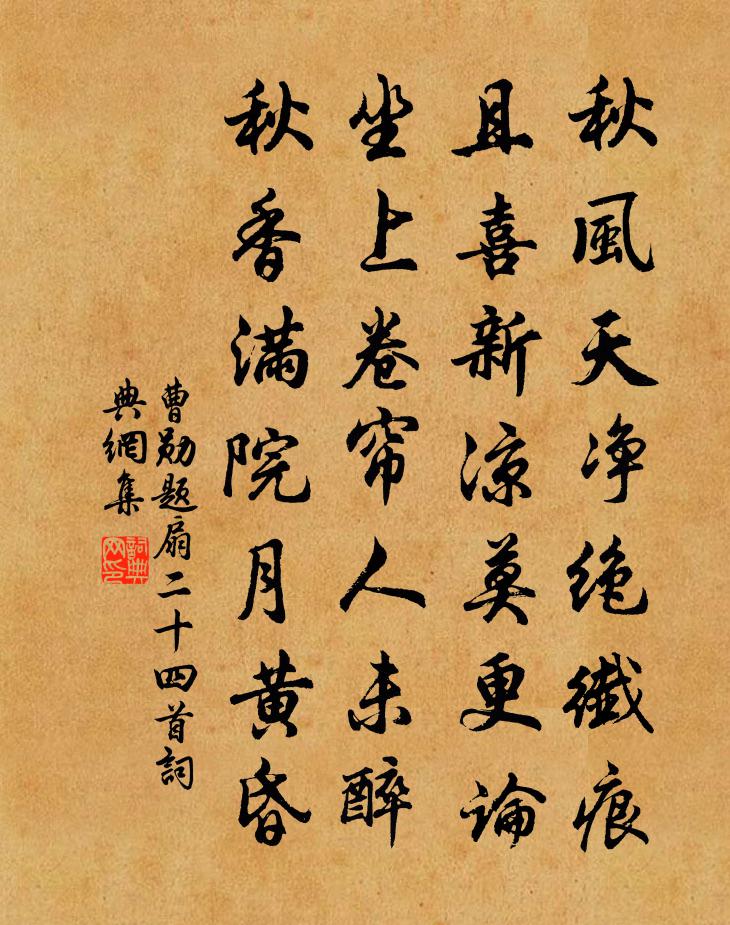 秋風天净绝纖痕
且喜新涼莫更論
坐上卷帘人未醉
秋香滿院月黄昏
曹勛題扇二十四首詞
典網集
詞典
网印